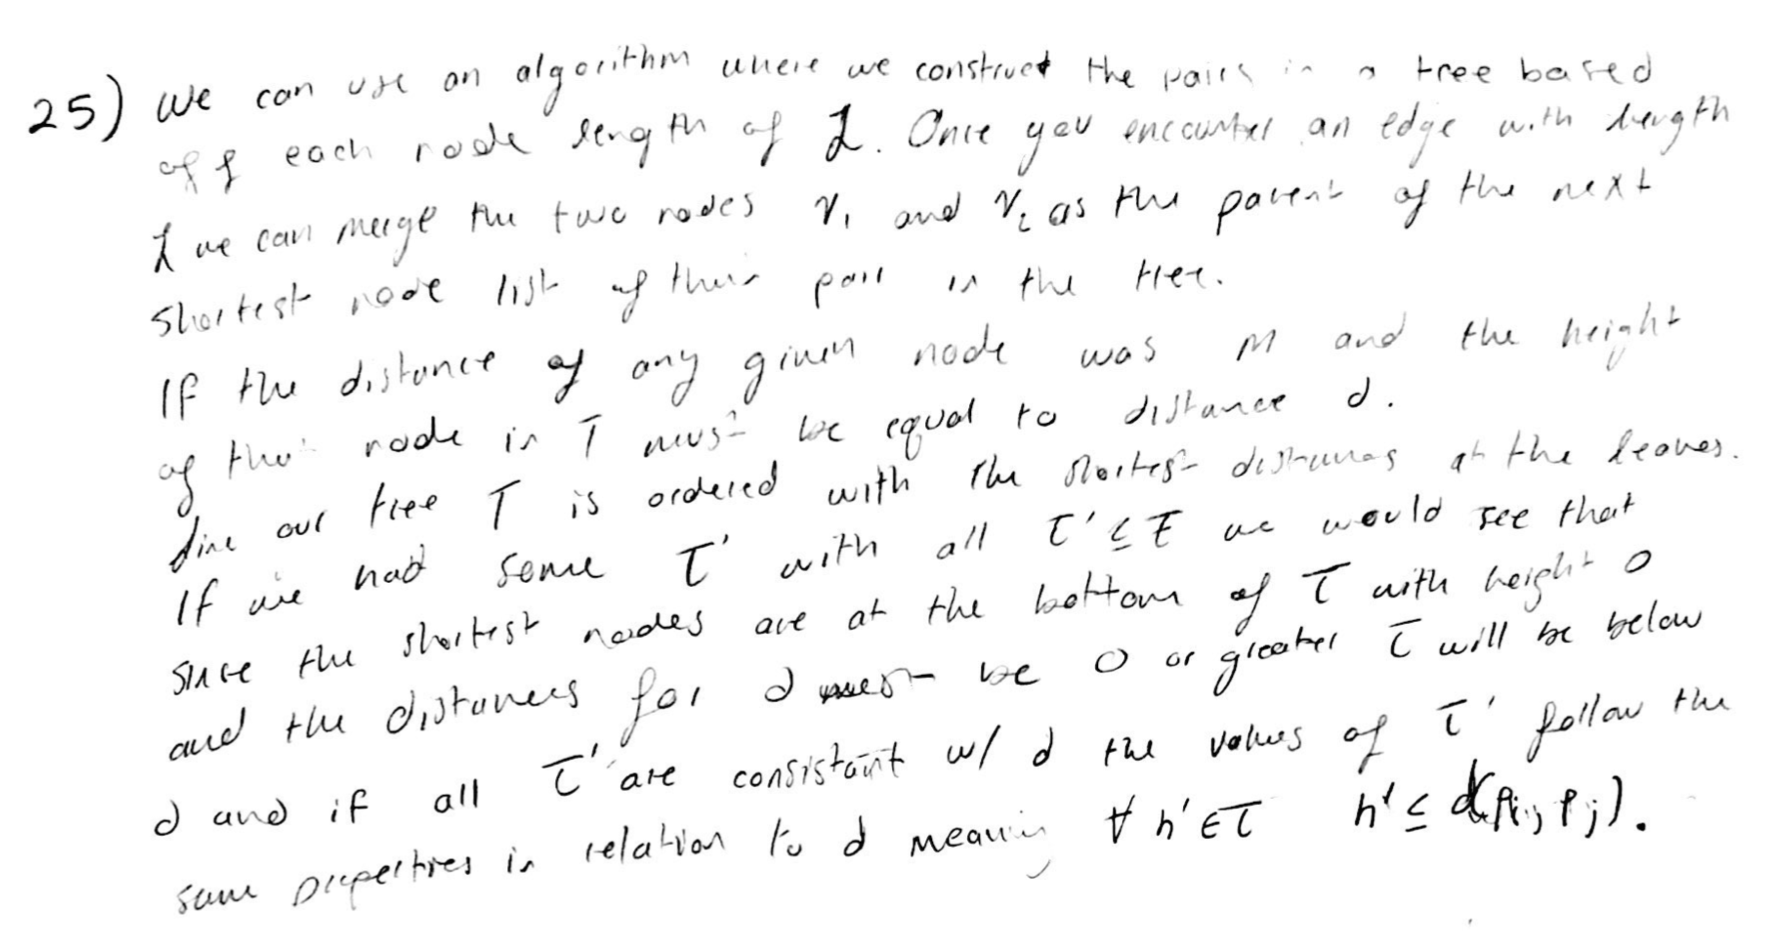 25) We can use an algorithm where we construct the pairs in a tree based
off each node length of L. Once you encounter an edge with length
L we can merge the two nodes V₁ and V₂ as the parent of the next
shortest node list of their pair in the tree.
If the distance of any given node was M and the height
of that node in T must be equal to distance d.
our tree T is ordered with the shortest distances at the leaves.
If we had some τ' with all τ' ≤ τ we would see that
since the shortest nodes are at the bottom of τ with height 0
and the distances for d must be 0 or greater τ will be below
d and if all τ' are consistant w/ d the values of τ' follow the
same properties in relation to d meaning ∀ h' ∈ τ h' ≤ d(Pi, Pj).